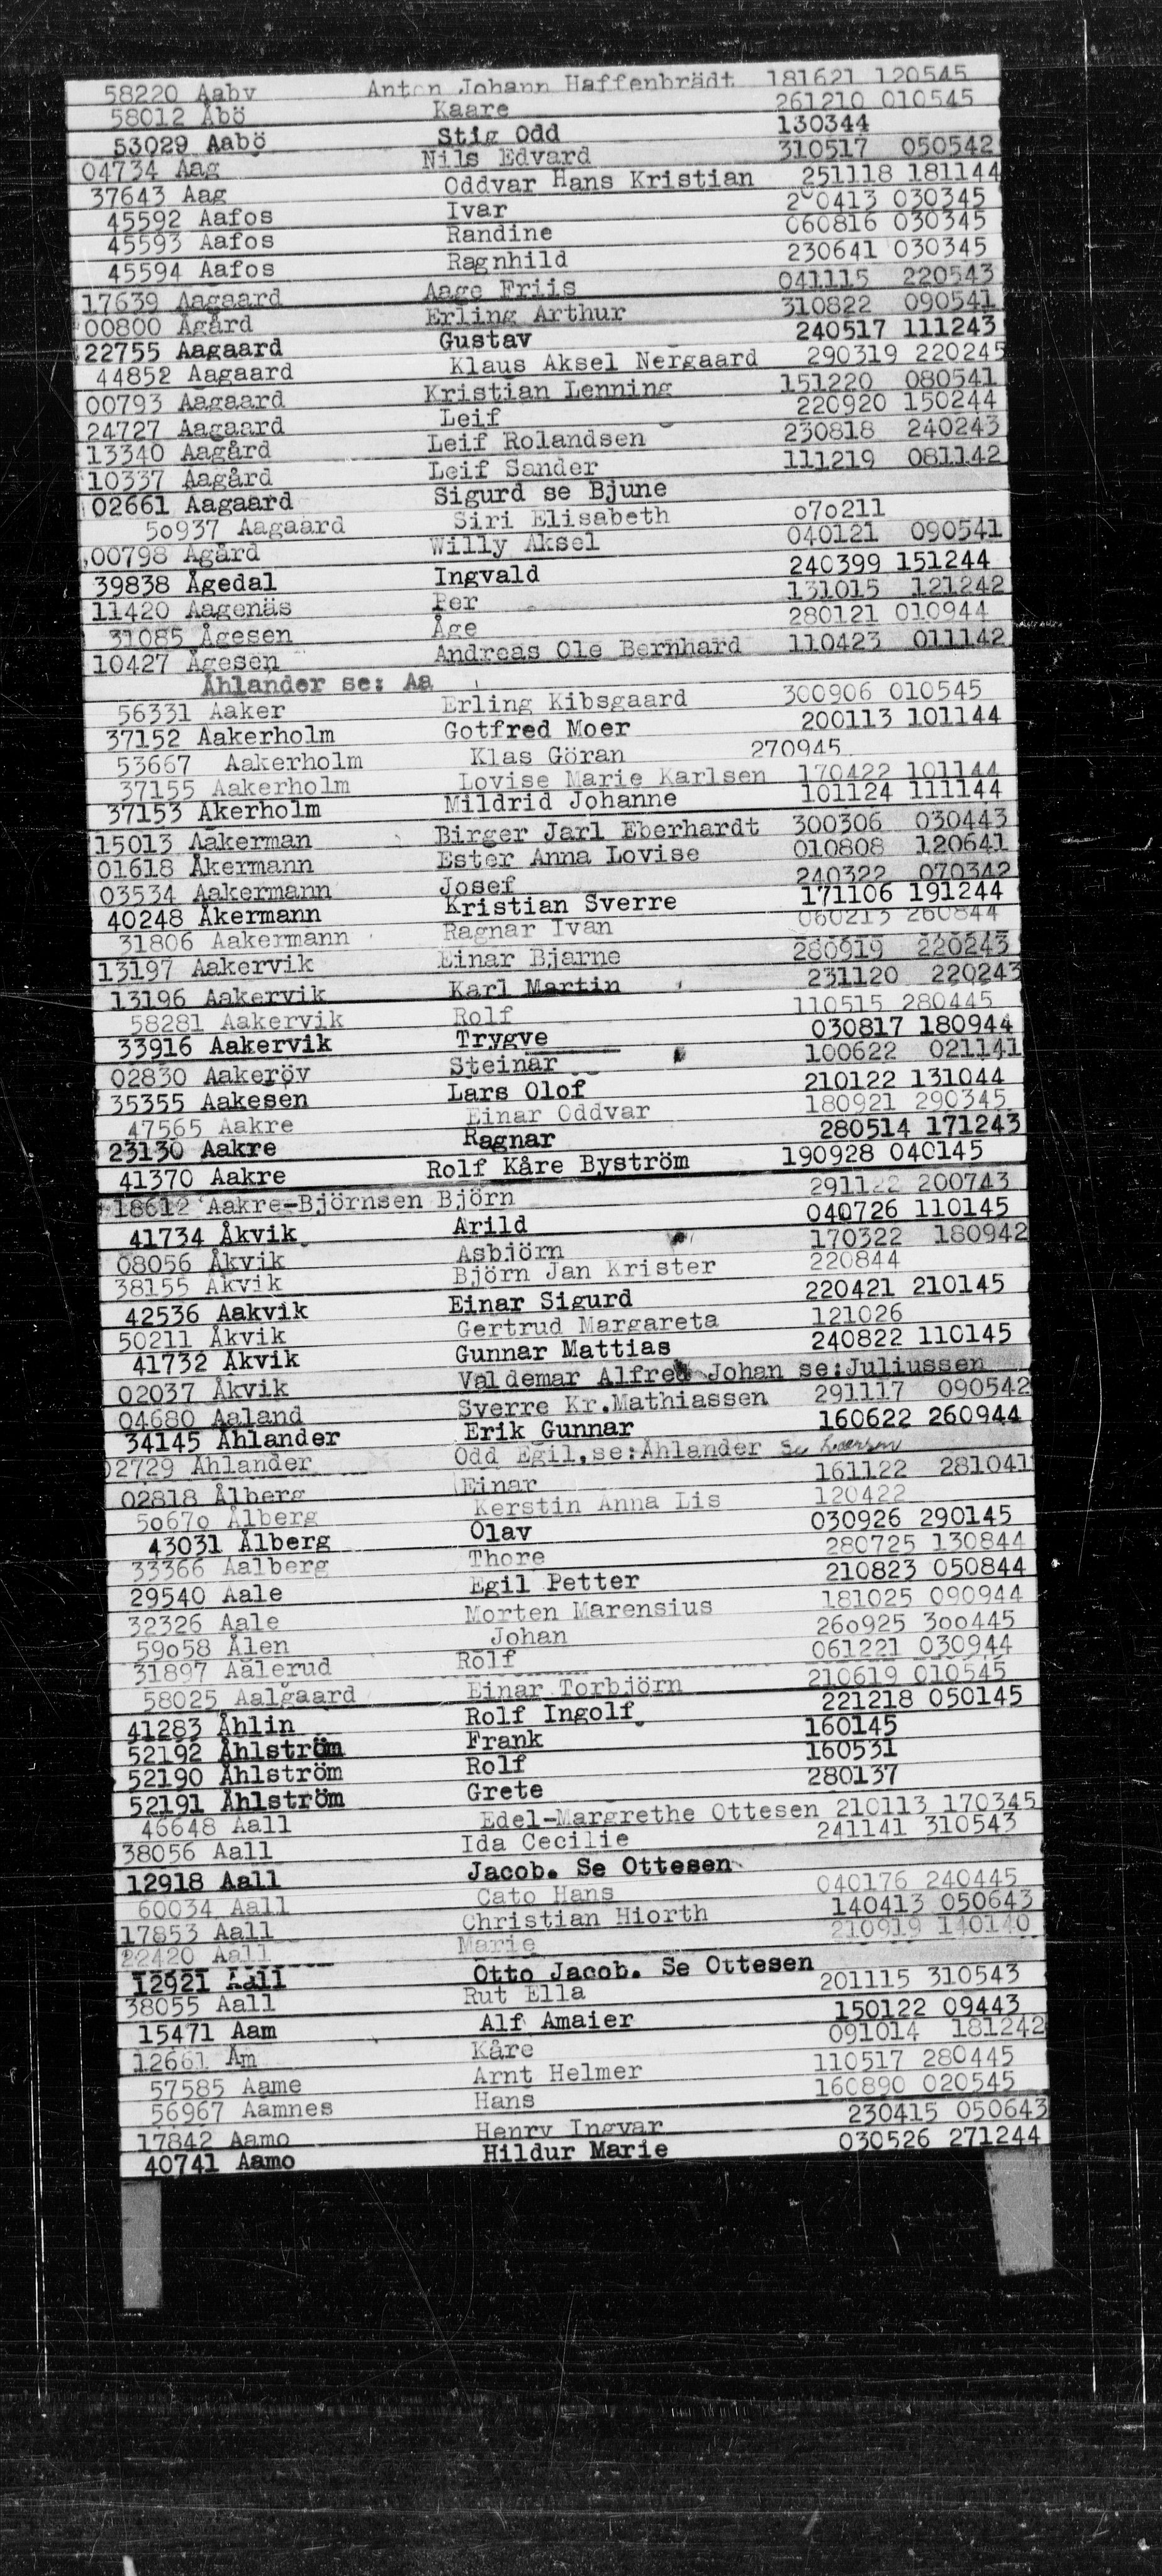 58220 Aaby Anton Johann Haffenbrädt 181621 120545
58012 Åbö Kaare 261210 010545
53029 Aabö Stig Odd 130344
04734 Aag Nils Edvard 310517 050542
37643 Aag Oddvar Hans Kristian 251118 181144
45592 Aafos Ivar 200413 030345
45593 Aafos Randine 060816 030345
45594 Aafos Ragnhild 230641 030345
17639 Aagaard Aage Friis 041115 220543
00800 Ågård Erling Arthur 310822 090541
22755 Aagaard Gustav 240517 111243
44852 Aagaard Klaus Aksel Nergaard 290319 220245
00793 Aagaard Kristian Lenning 151220 080541
24727 Aagaard Leif 220920 150244
13340 Aagård Leif Rolandsen 230818 240243
10337 Aagård Leif Sander 111219 081142
02661 Aagaard Sigurd se Bjune
50937 Aagaard Siri Elisabeth 070211
00798 Ågård Willy Aksel 040121 090541
39838 Ågedal Ingvald 240399 151244
11420 Aagenäs Per 131015 121242
31085 Ågesen Åge 280121 010944
10427 Ågesen Andreas Ole Bernhard 110423 011142
Åhlander se: Aa
56331 Aaker Erling Kibsgaard 300906 010545
37152 Aakerholm Gotfred Moer 200113 101144
53667 Aakerholm Klas Göran 270945
37155 Aakerholm Lovise Marie Karlsen 170422 101144
37153 Åkerholm Mildrid Johanne 101124 111144
15013 Aakerman Birger Jarl Eberhardt 300306 030443
01618 Åkermann Ester Anna Lovise 010808 120641
03534 Aakermann Josef 240322 070342
40248 Åkermann Kristian Sverre 171106 191244
31806 Aakermann Ragnar Ivan 060213 260844
13197 Aakervik Einar Bjarne 280919 220243
13196 Aakervik Karl Martin 231120 220243
58281 Aakervik Rolf 110515 280445
33916 Aakervik Trygve 030817 180944
02830 Aakeröv Steinar 100622 021141
35355 Aakesen Lars Olof 210122 131044
47565 Aakre Einar Oddvar 180921 290345
23130 Aakre Ragnar 280514 171243
41370 Aakre Rolf Kåre Byström 190928 040145
18612 Aakre-Björnsen Björn 291122 200743
41734 Åkvik Arild 040726 110145
08056 Åkvik Asbjörn 170322 180942
38155 Åkvik Björn Jan Krister 220844
42536 Aakvik Einar Sigurd 220421 210145
50211 Åkvik Gertrud Margareta 121026
41732 Åkvik Gunnar Mattias 240822 110145
02037 Åkvik Valdemar Alfred Johan se:Juliussen
04680 Aaland Sverre Kr.Mathiassen 291117 090542
34145 Åhlander Erik Gunnar 160622 260944
02729 Åhlander Odd Egil.se:Åhlander Se
02818 Ålberg Einar 161122 281041
50670 Ålberg Kerstin Anna Lis 120422
43031 Ålberg Olav 030926 290145
33366 Aalberg Thore 280725 130844
29540 Aale Egil Petter 210823 050844
32326 Aale Morten Marensius 181025 090944
59058 Ålen Johan 260925 300445
31897 Aalerud Rolf 061221 030944
58025 Aalgaard Einar Torbjörn 210619 010545
41283 Åhlin Rolf Ingolf 221218 050145
52192 Åhlström Frank 160145
52190 Åhlström Rolf 160531
52191 Åhlström Grete 280137
46648 Aall Edel-Margrethe Ottesen 210113 170345
38056 Aall Ida Cecilie 241141 310543
12918 Aall Jacob. Se Ottesen
60034 Aall Cato Hans 040176 240445
17853 Aall Christian Hiorth 140413 050643
22420 Aall Marie 210919 140140
12921 Aall Otto Jacob. Se Ottesen
38055 Aall Rut Ella 201115 310543
15471 Aam Alf Amaier 150122 09443
12661 Åm Kåre 091014 181242
57585 Aame Arnt Helmer 110517 280445
56967 Aamnes Hans 160890 020545
17842 Aamo Henry Ingvar 230415 050643
40741 Aamo Hildur Marie 030526 271244